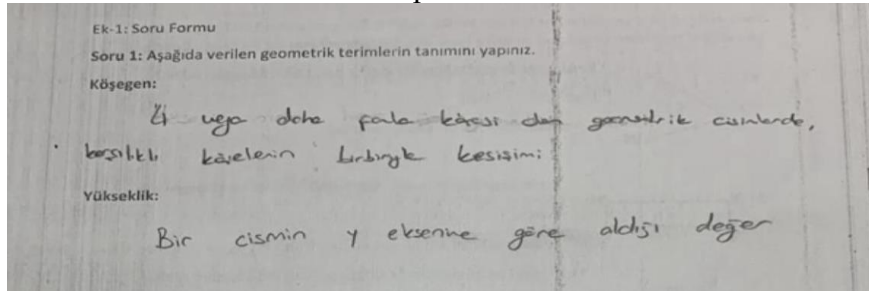 Ek-1: Soru Formu
Soru 1: Aşağıda verilen geometrik terimlerin tanımını yapınız.
Köşegen:
veya daha fazla köşesi olan geometrik cisimlerde,
karşılıklı köşelerin birbiriyle kesişimi
Yükseklik:
Bir cismin y eksenine göre aldığı değer